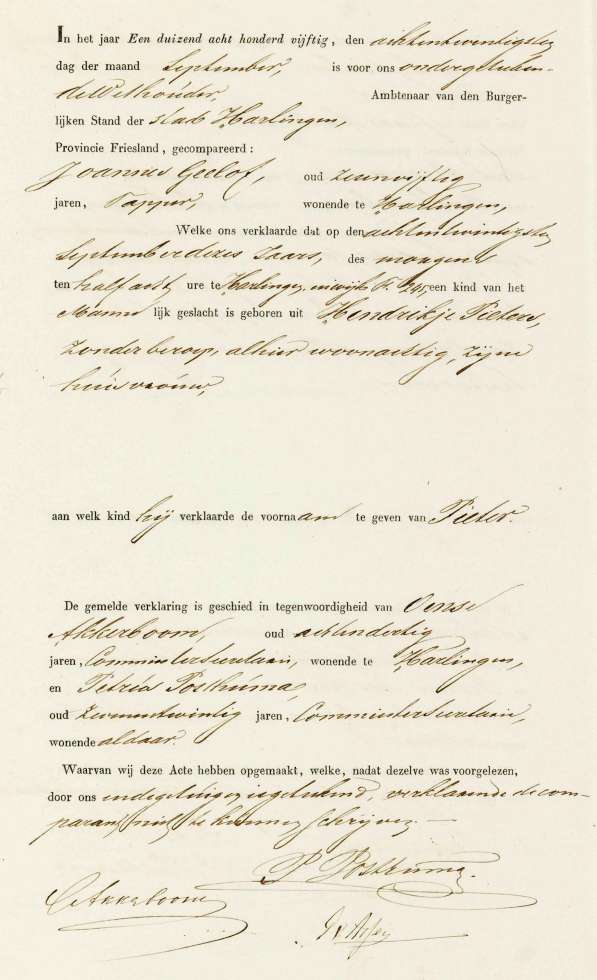 In het jaar Een duizend acht honderd vijftig, den achtentwintigsten
dag der maand September, is voor ons ondergeteken-
de Wethouder, Ambtenaar van den Burger-
lijken Stand der stad Harlingen,
Provincie Friesland, gecompareerd:
Joannes Geelof, oud
jaren, Tapper, wonende te Harlingen,
Welke ons verklaarde dat op den achtentwintigsten
September dezes Jaars, des morgens
ten half acht ure te Harlingen, in wijk F. 245 een kind van het
Mannelijk geslacht is geboren uit Hendrikje Pieters,
zonder beroep, alhier woonachtig, zijne
huisvrouw,
aan welk kind hij verklaarde de voornaam te geven van Pieter.
De gemelde verklaring is geschied in tegenwoordigheid van
Akkerboom, oud achtendertig
jaren, Commies ter Secretarie, wonende te Harlingen,
en Petrus Posthuma,
oud zevenentwintig jaren, Commies ter Secretarie,
wonende aldaar.
Waarvan wij deze Acte hebben opgemaakt, welke, nadat dezelve was voorgelezen,
door ons en de getuigen is getekend, verklarende de com-
parant niet te kunnen schrijven.
P Posthuma.
Akkerboom